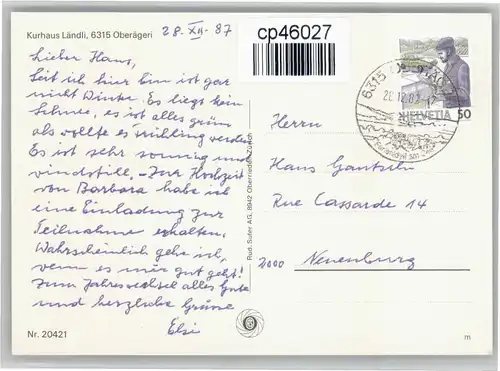 Kurhaus Ländli, 6315 Oberägeri
28. XII. 87
cp46027
Lieber Hans,
Seit ich hier bin ist gar
nicht Winter. Es liegt kein
Schnee, es ist alles grün
als wollte es Frühling werden
Es ist sehr sonnig und
windstill. – Zur Hochzeit
von Barbara habe ich
eine Einladung zur
Teilnahme erhalten.
Wahrscheinlich gehe ich,
wenn es mir gut geht!
Zum Jahreswechsel alles Gute
und herzliche Grüsse
Elsi
Nr. 20421
Rud. Suter AG, 8942 Oberrieden-Zürich
6315
HELVETIA 50
Herrn
Hans Gantschi
Rue Cassarde 14
2000 Neuenburg
m